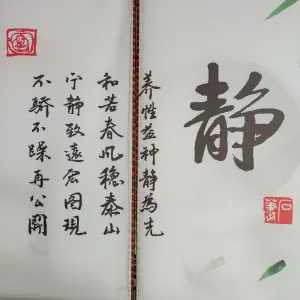 静
养性益神静為先
和若春风穩泰山
宁静致遠宏图現
不骄不躁再公